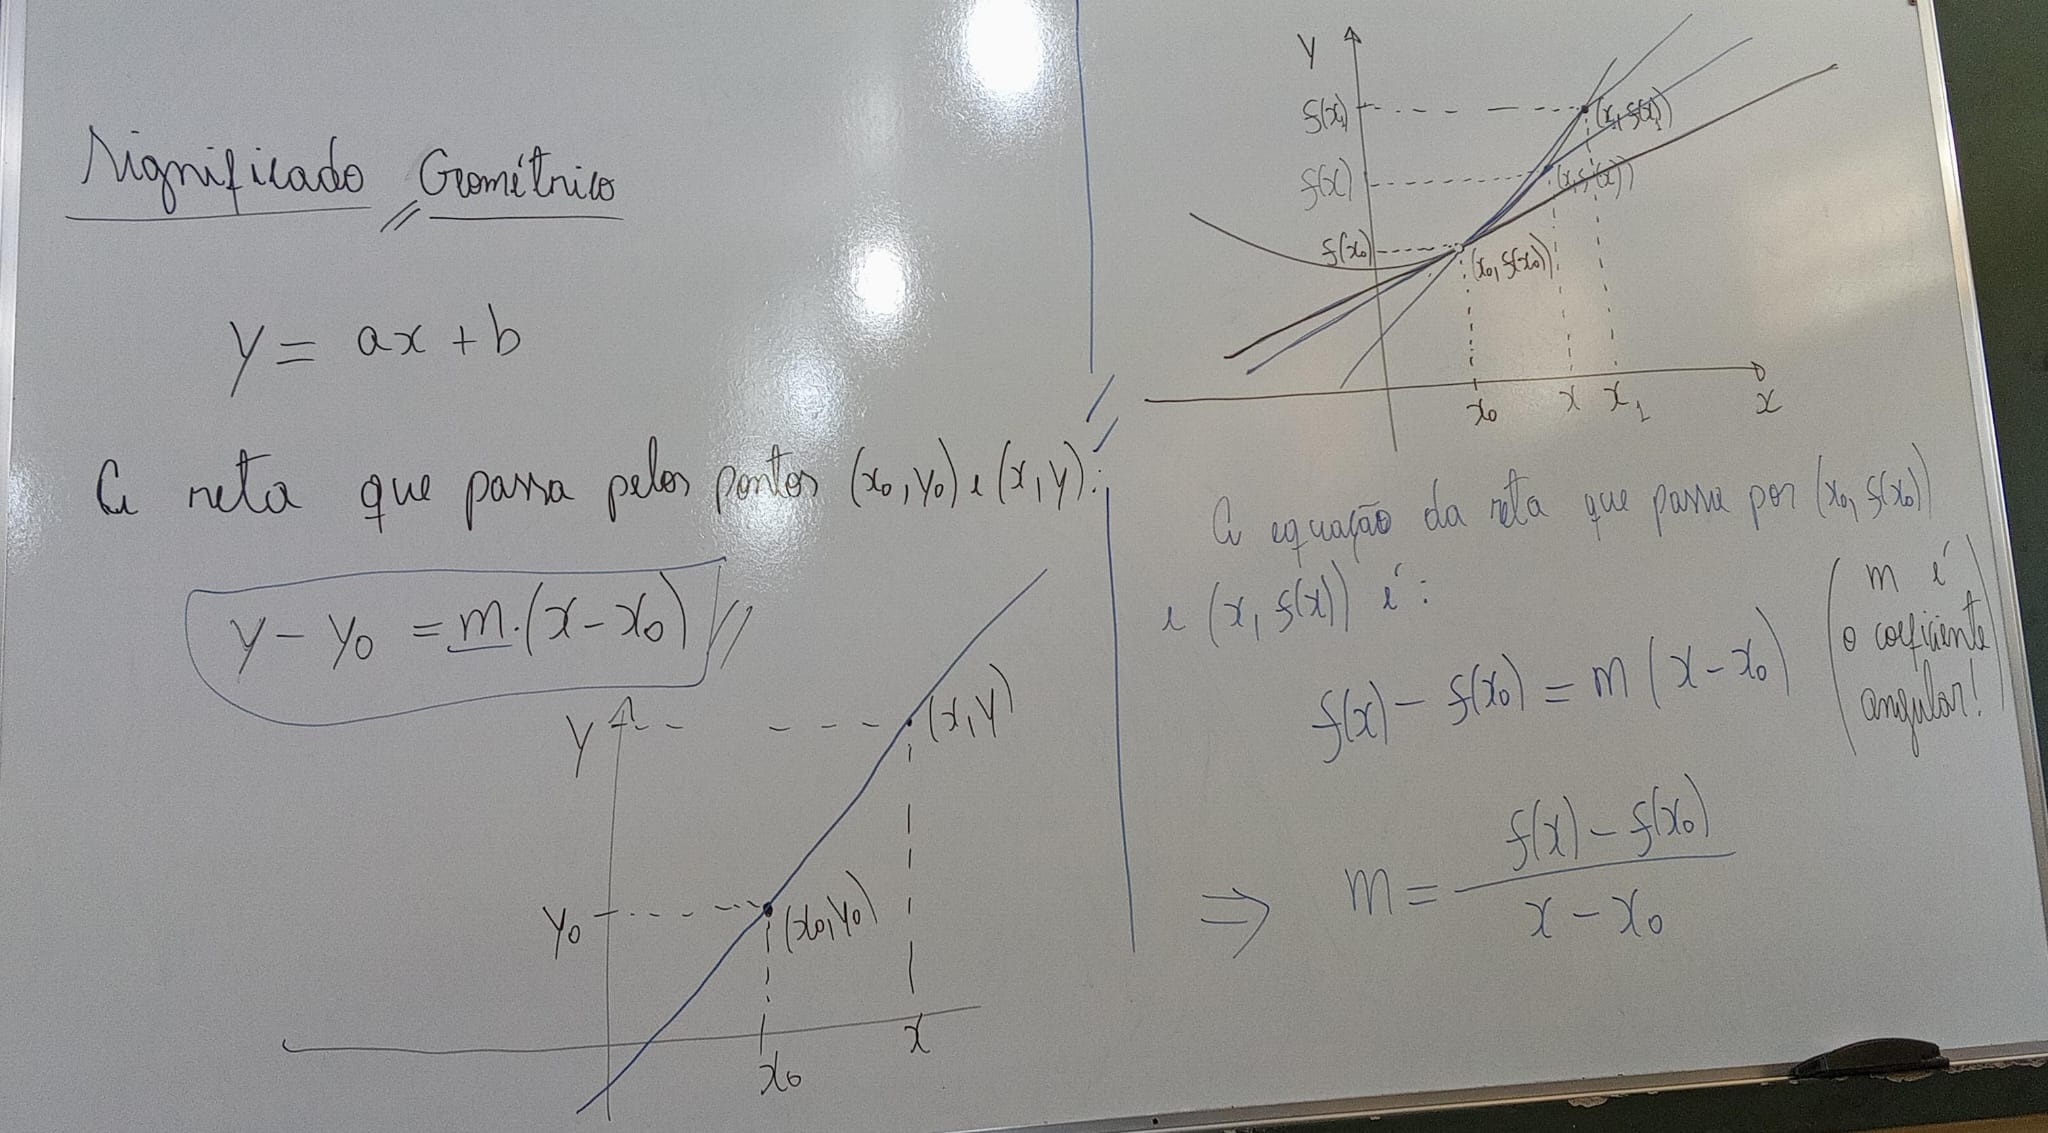 Significado Geométrico
y = ax + b
A reta que passa pelos pontos (x₀, y₀) e (x, y):
y - y₀ = m·(x - x₀)
y
(x, y)
y₀
(x₀, y₀)
x₀
x
y
f(x₁)
(x₁, f(x₁))
f(x)
(x, f(x))
f(x₀)
(x₀, f(x₀))
x₀
x
x₁
x
A equação da reta que passa por (x₀, f(x₀))
e (x, f(x)) é:
f(x) - f(x₀) = m (x - x₀)
(m é
o coeficiente
angular!)
⇒ m = (f(x) - f(x₀)) / (x - x₀)